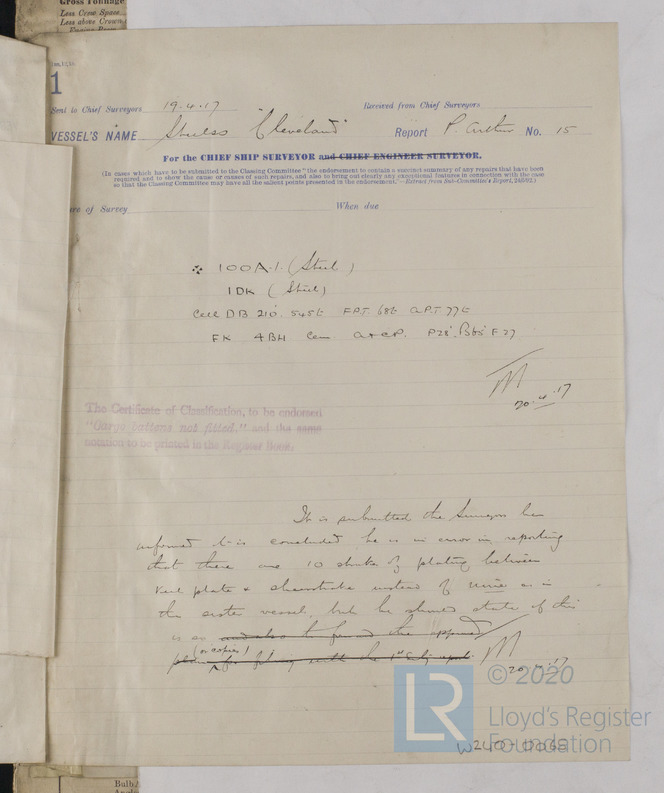 Gross Tonnage
Less Crew Space
Less above Crown
1
Sent to Chief Surveyors 19.4.17 Received from Chief Surveyors
VESSEL'S NAME "Cleveland" Report P. Arthur No. 15
For the CHIEF SHIP SURVEYOR and CHIEF ENGINEER SURVEYOR.
(In cases which have to be submitted to the Classing Committee "the endorsement to contain a succinct summary of any repairs that have been
required and to show the cause or causes of such repairs, and also to bring out clearly any exceptional features in connection with the case
so that the Classing Committee may have all the salient points presented in the endorsement."—Extract from Sub-Committee's Report,
of Survey When due
100A.1. (Steel)
1DK (Steel)
Cell DB 210' 545t F.P.T. 68t A.P.T 77t
FK 4BH Cem
20.4.17
The Certificate of Classification, to be endorsed
"Cargo battens not fitted." and the same
notation to be printed in the Register Book.
It is submitted the Surveyor be
informed it is concluded he is in error in reporting
that there are 10 strakes of plating between
keel plate & sheerstrake instead of nine as in
the sister vessel, but he should state if this
is so and also to forward the approved
(or copies)
plans for filing with the 1st Entry report.
20.4.17
© 2020
LR
Lloyd's Register
Foundation
W240-0068
Bulb